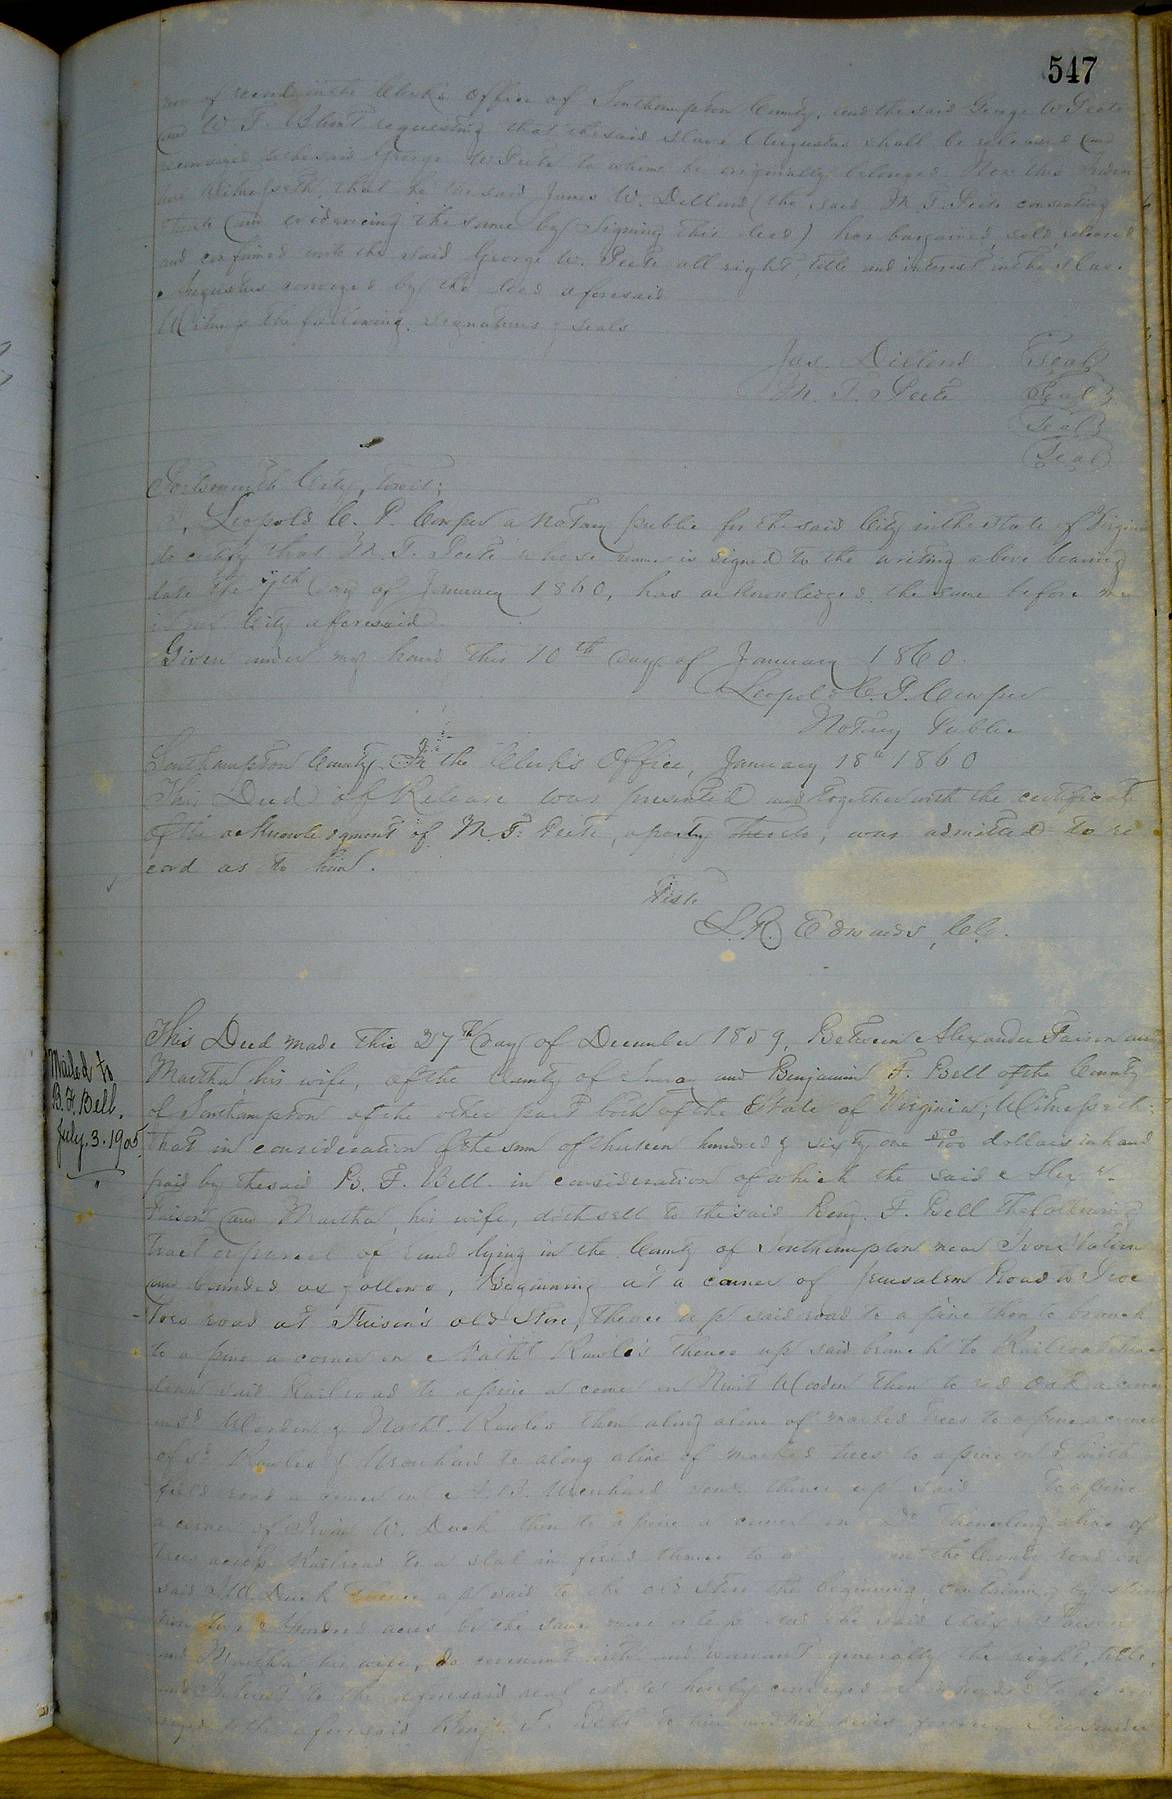 547
now of record in the Clerk's Office of Southampton County, and the said George W Peete
and W. T. Blunt requesting that the said slave Augustus shall be released and
reconveyed to the said George W Peete to whom he originally belonged Now this Inden
ture Witnesseth, that he the said James W. Dillard (the said M. T. Peete consenting
and evidencing the same by signing this deed) has bargained, sold, released
and confirmed unto the said George W. Peete all right title and interest in the slave
Augustus conveyed by the deed aforesaid
Witness the following signatures & seals
Jas. Dillard Seal
M. T. Peete Seal
Seal
Seal
Portsmouth City, to wit;
I, Leopold C. P. Cowper a Notary public for the said City in the State of Virginia
do certify that M. T. Peete whose name is signed to the writing above bearing
date the 7th day of January 1860, has acknowledged the same before me
in my City aforesaid
Given under my hand this 10th day of January 1860.
Leopold C. P. Cowper
Notary Public
Southampton County In the Clerk's Office, January 18th 1860
This Deed of Release was presented and together with the certificate
of the acknowledgment of M. T. Peete, a party thereto, was admitted to re
cord as to him.
Teste
L. R. Edwards, CC.
Mailed to
B. F. Bell.
July. 3. 1905
This Deed made this 27th day of December 1859, Between Alexander Faison and
Martha his wife, of the County of Surry and Benjamin F. Bell of the County
of Southampton of the other part both of the State of Virginia; Witnesseth;
that in consideration of the sum of thirteen hundred & sixty one 50/100 dollars in hand
paid by the said B. F. Bell in consideration of which the said Alex
Faison and Martha, his wife, doth sell to the said Benj. F. Bell the following
tract or parcel of land lying in the County of Southampton near Ivor Station
and bounded as follows, Beginning at a corner of Jerusalem Road &
road at Faison's old Store, thence up said road to a pine then to branch
to a pine a corner in Nath'l Rawles thence up said branch to Railroad thence
down said Railroad to a pine a corner in Wooden then to red oak a corner
in sd & Nath'l Rawles then along a line of marked trees to a pine a corner
of sd Rawles & to along a line of marked trees to a pine
field road a corner in thence up said to a pine
a corner of W. Duck then to a pine a corner in then along a line of
trees across Railroad to a in field thence to a on the County road on
said Duck thence up said to the old Store the beginning, containing by
hundred acres be the same more or less and the said Alex Faison
and Martha, his wife, do covenant with and warrant generally the right, title,
and interest to the aforesaid real estate hereby conveyed or intended to be con
veyed to the aforesaid Benj. F. Bell to him and his heirs forever Given under